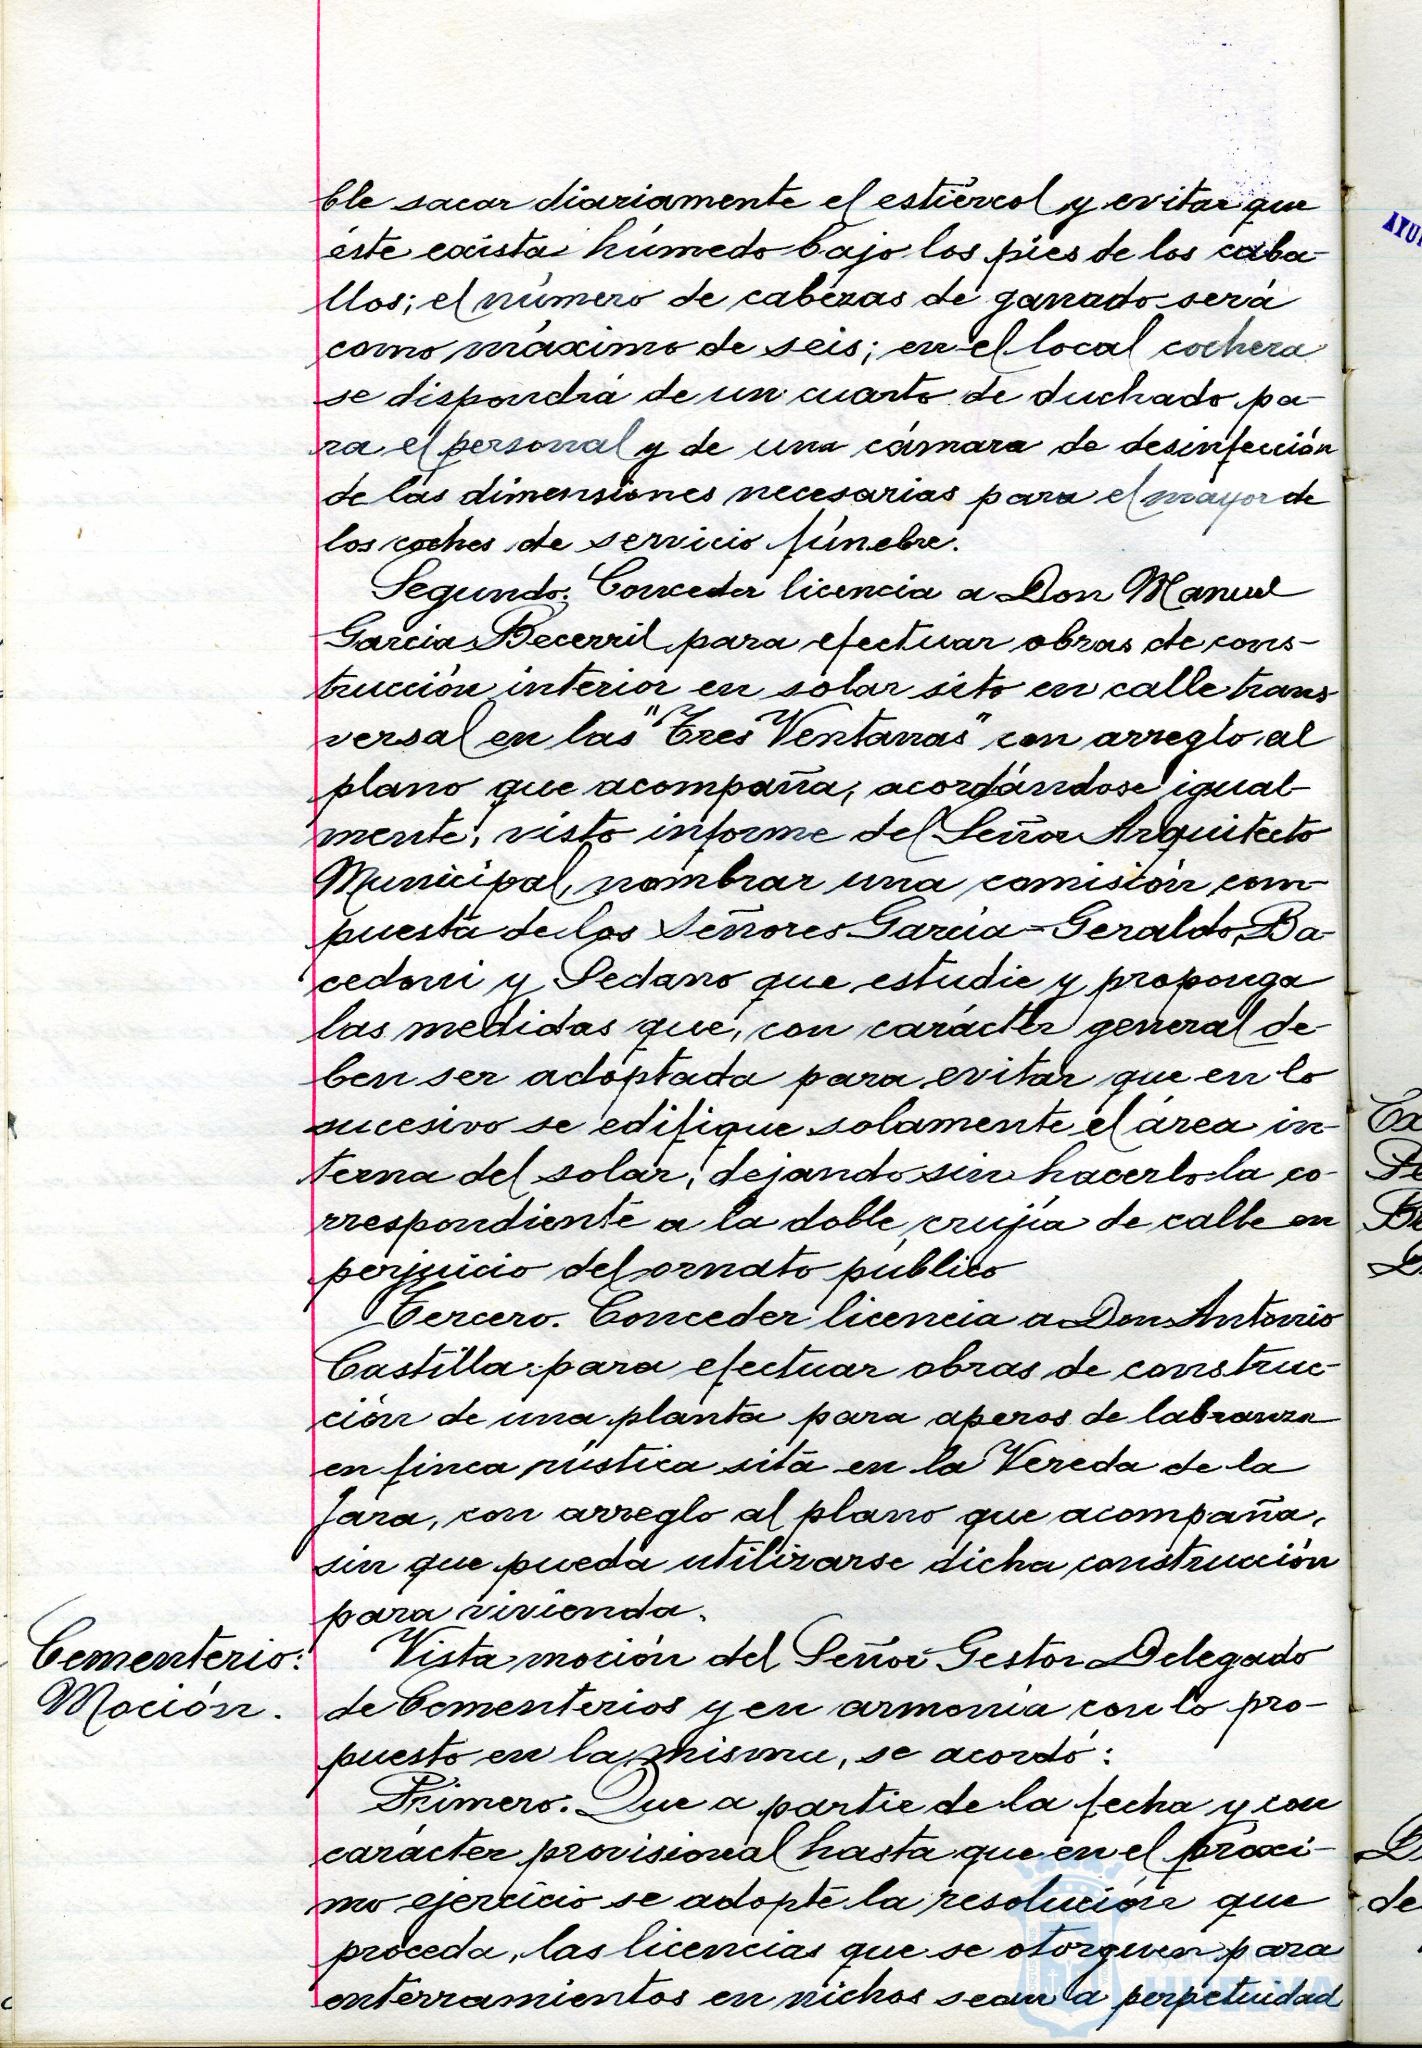 ble sacar diariamente el estiércol y evitar que
éste exista húmedo bajo los pies de los caba-
llos; el número de cabezas de ganado será
como máximo de seis; en el local cochera
se dispondrá de un cuarto de duchado pa-
ra el personal y de una cámara de desinfección
de las dimensiones necesarias para el mayor de
los coches de servicio fúnebre.
Segundo. Conceder licencia a Don Manuel
García Becerril para efectuar obras de cons-
trucción interior en solar sito en calle trans
versal en las "Tres Ventanas" con arreglo al
plano que acompaña, acordándose igual-
mente, visto informe del Señor Arquitecto
Municipal, nombrar una comisión com-
puesta de los Señores García-Geraldo, Ba-
cedoni y Sedano que estudie y proponga
las medidas que, con carácter general de-
ben ser adoptada para evitar que en lo
sucesivo se edifique solamente el área in-
terna del solar, dejando sin hacerlo la co-
rrespondiente a la doble crujía de calle en
perjuicio del ornato público
Tercero. Conceder licencia a Don Antonio
Castilla para efectuar obras de construc-
ción de una planta para aperos de labranza
en finca rústica sita en la Vereda de la
Jara, con arreglo al plano que acompaña,
sin que pueda utilizarse dicha construcción
para vivienda.
Cementerio:
Moción.
Vista moción del Señor Gestor Delegado
de Cementerios y en armonía con lo pro-
puesto en la misma, se acordó:
Primero. Que a partir de la fecha y con
carácter provisional hasta que en el próxi-
mo ejercicio se adopte la resolución que
proceda, las licencias que se otorguen para
enterramientos en nichos sean a perpetuidad
Ayuntamiento de
HUELVA